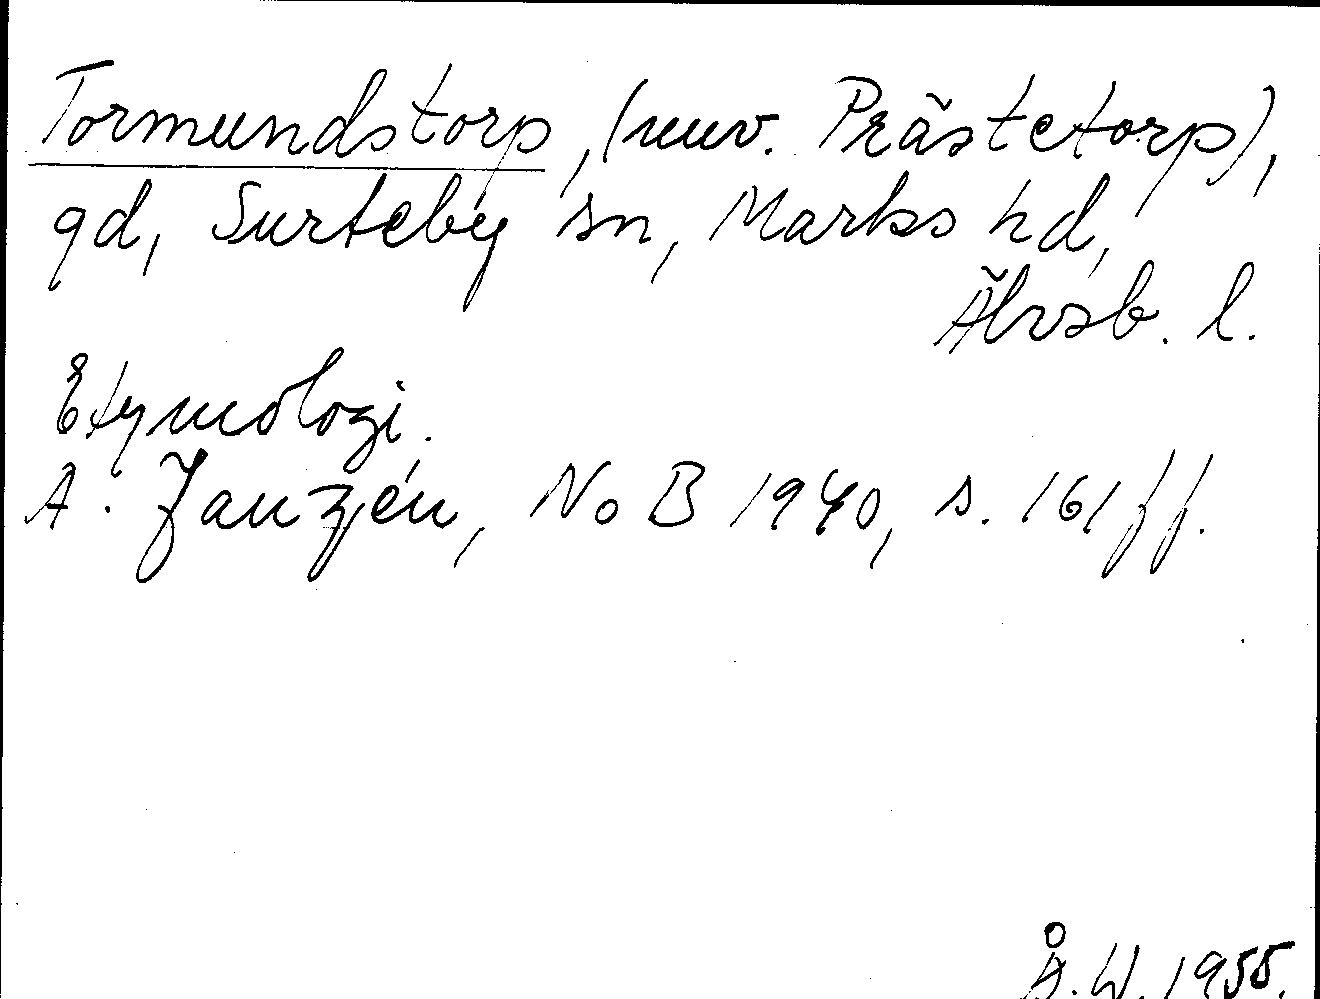 Tormundstorp, (nuv. Prästetorp),
gd, Surteby sn, Marks hd,
Älvsb. l.
Etymologi.
A. Janzén, NoB 1940, s. 161 ff.
Å. W. 1955.